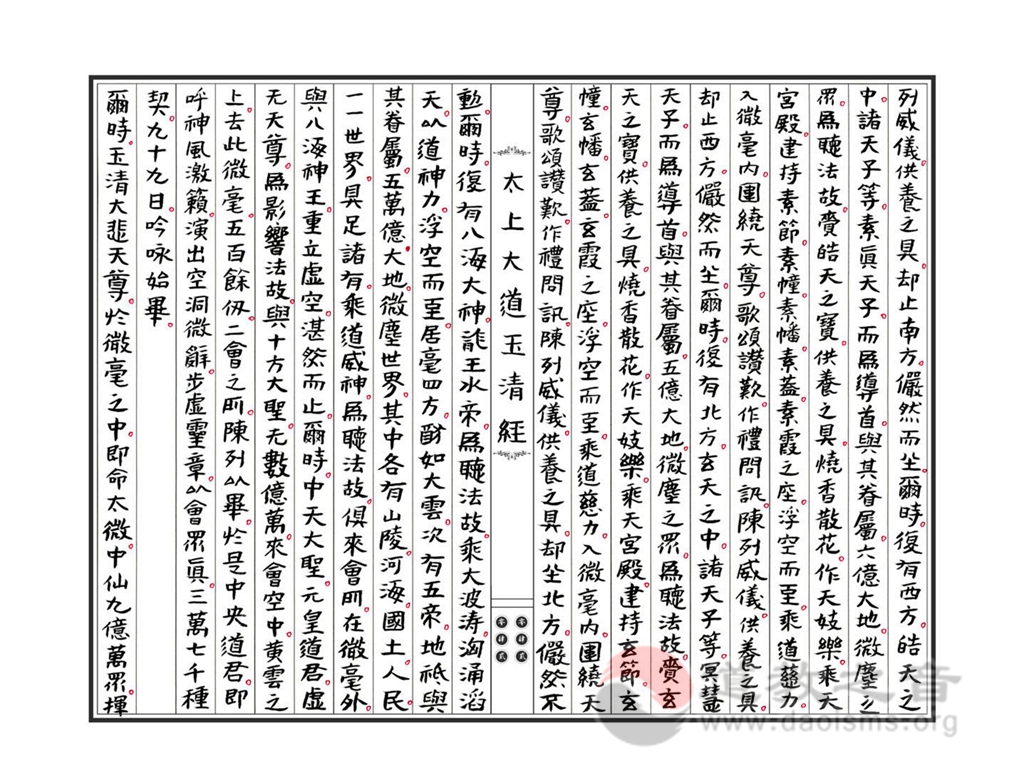 列威儀供養之具却止南方儼然而坐爾時復有西方皓天之
中諸天子等素眞天子而爲導首與其眷屬六億大地微塵之
眾爲聽法故賷皓天之寶供養之具燒香散花作天妓樂乘天
宮殿建持素節素幢素幡素蓋素霞之座浮空而至乘道慈力
入微毫內圍繞天尊歌頌讚歎作禮問訊陳列威儀供養之具
却止西方儼然而坐爾時復有北方玄天之中諸天子等冥慧
天子而爲導首與其眷屬五億大地微塵之眾爲聽法故賷玄
天之寶供養之具燒香散花作天妓樂乘天宮殿建持玄節玄
幢玄幡玄蓋玄霞之座浮空而至乘道慈力入微毫內圍繞天
尊歌頌讚歎作禮問訊陳列威儀供養之具却坐北方儼然不
太上大道玉清經
零肆貳
零肆貳
動爾時復有八海大神龍王水帝爲聽法故乘大波濤洶涌滔
天以道神力浮空而至居毫四方酧如大雲次有五帝地祇與
其眷屬五萬億大地微塵世界其中各有山陵河海國土人民
一一世界具足諸有乘道威神爲聽法故俱來會所在微毫外
與八海神王重立虛空湛然而止爾時中天大聖元皇道君虛
无天尊爲影響法故與十方大聖无數億萬來會空中黃雲之
上去此微毫五百餘仞二會之所陳列以畢於是中央道君即
呼神風激籟演出空洞微辭步虛靈章以會眾眞三萬七千種
契九十九日吟咏始畢
爾時玉清大悲天尊於微毫之中即命太微中仙九億萬眾揮
道教之音
www.daoisms.org